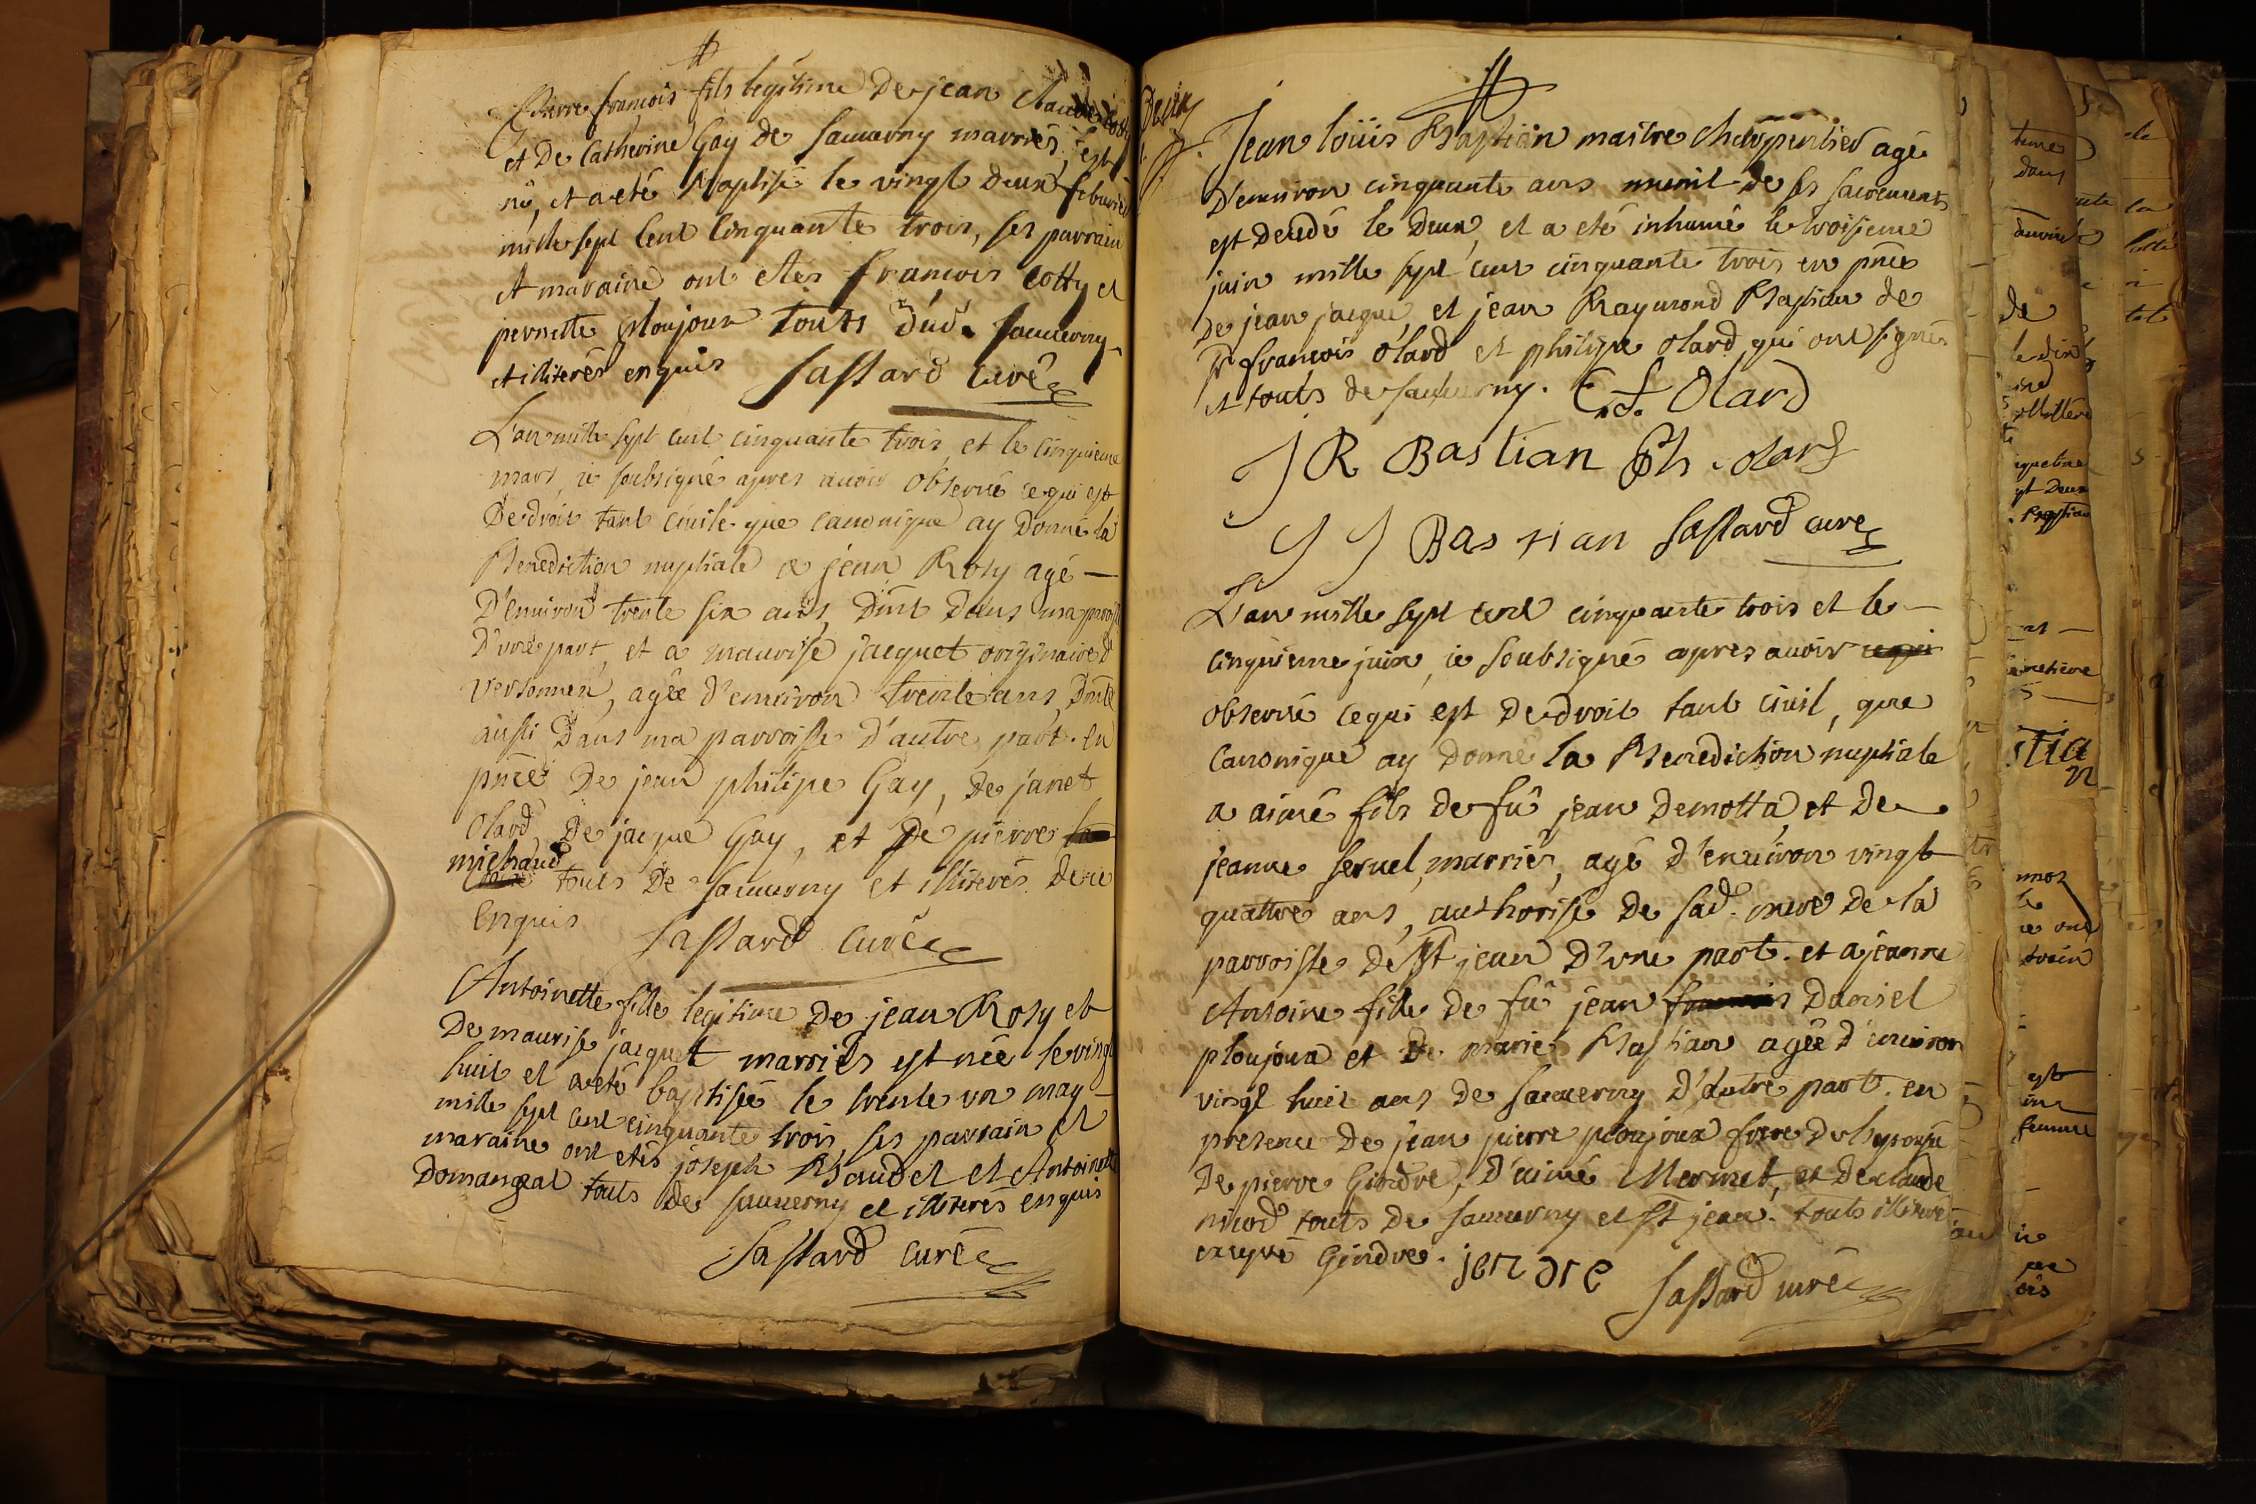 Pierre françois fils legitime De jean Claude Cotty
et De Catherine Gay de Sauverny marriés, est
né, et a eté Baptisé le vingt Deux febvrier
mille sept Cent Cinquante trois, ses parrain
et maraine ont etes francois Cotty et
pernette ploujoux touts Dud. Sauverny
et illiterés enquis Sassard Curé
L'an mille sept cent cinquante trois et le Cinquieme
mars, ie soubsigné apres auoir observé ce qui est
De droit tant civile que canonique ay Donné la
Benediction nuptiale a jean Rosy agé —
D'environ trente six ans, Dmt Dans ma paroisse
D'une part, et a maurise jacquet originaire d
Versonnex, agée d'environ trente ans, Dmte
aussi Dans ma parroisse D'autre part. en
pnce De jean philipe Gay, De janet
Olard, De jacque Gay, et De pierre
michaud
touts De Sauverny et illiterés De ce
Enquis Sassard Curé
Antoinette fille legitime De jean Rosy et
De maurise jacquet marriés est née le vingt
huit et a eté baptisée le trente un may —
mille sept cent cinquante trois, ses parrain et
maraine ont etés joseph Baudet et Antoinette
Domangeat touts de Sauverny et illiterés enquis
Sassard Curé
Jean loüis Bastian maitre Charpentier agé
D'environ cinquante ans munit de ses sacrements
est Decedé le Deux, et a eté inhumé le troisieme
juin mille sept cent cinquante trois en pnce
De jean jacque, et jean Raymond Bastian de
Sr francois Olard et philipe Olard qui ont signés
et touts de Sauverny. E. f. Olard
J R Bastian Ph. olard
J J Bastian Sassard curé
L'an mille sept cent cinquante trois et le —
cinquieme juin, ie Soubsigné apres avoir
observé ce qui est De droit tant civil, que
Canonique ay Donné la Benediction nuptiale
a aimé fils de fû jean Demotta et De
jeanne Servel, marriés, agé D'environ vingt
quattre ans, authorisé De sad. mere De la
parroisse De St jean D'une part. et a jeanne
Antoine fille De fû jean Daniel
ploujoux et De marie Bastian agée D'environ
vingt huit ans De Sauverny D'autre part. en
presence De jean pierre ploujoux frere De l'epouse
De pierre Gindre, D'aimé Mermet, et De claude
nicod touts De Sauverny et St jean. touts illiteré
excepté Gindre. jendre Sassard curé